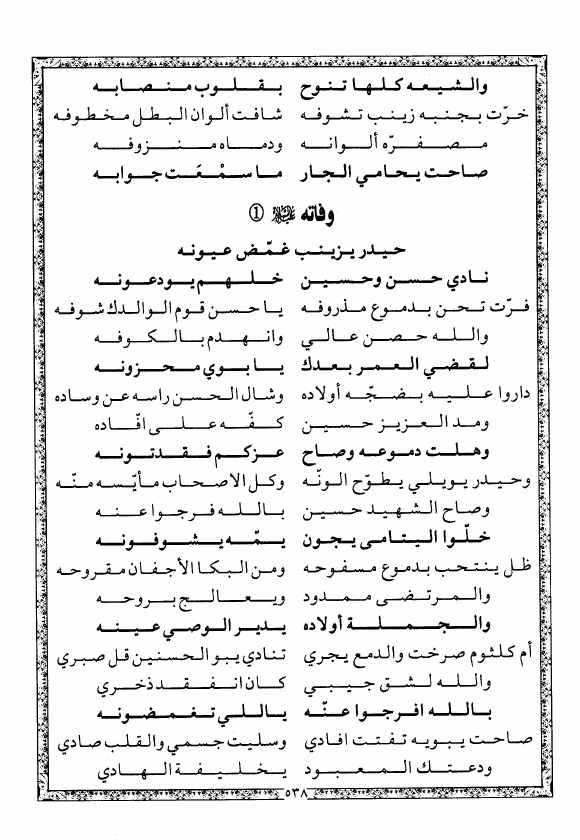 والشيعه كلها تنوح بقلوب منصابه
خرّت بجنبه زينب تشوفه شافت ألوان البطل مخطوفه
مصفرّه ألوانه ودماه منزوفه
صاحت يحامي الجار ما سمْعَت جوابه
وفاته ﷺ ①
حيدر يزينب غمّض عيونه
نادي حسن وحسين خلهم يودعونه
فرّت تحن بدموع مذروفه يا حسن قوم الوالدك شوفه
والله حصن عالي وانهدم بالكوفه
لقضي العمر بعدك يا بوي محزونه
داروا عليه بضجّه أولاده وشال الحسن راسه عن وساده
ومد العزيز حسين كفّه على افّاده
وهلت دموعه وصاح عزكم فقدتونه
وحيدر يويلي يطوّح الونّه وكل الاصحاب مأيّسه منّه
وصاح الشهيد حسين بالله فرجوا عنه
خلّوا اليتامى يجون يمّه يشوفونه
ظل ينتحب بدموع مسفوحه ومن البكا الأجفان مقروحه
والمرتضى ممدود ويعالج بروحه
والجملة أولاده يدير الوصي عينه
أم كلثوم صرخت والدمع يجري تنادي يبو الحسنين قل صبري
والله لشق جيبي كان انفقد ذخري
بالله افرجوا عنّه ياللي تغمضونه
صاحت يبويه تفتت افادي وسليت جسمي والقلب صادي
ودعتك المعبود يخليفة الهادي
٥٣٨